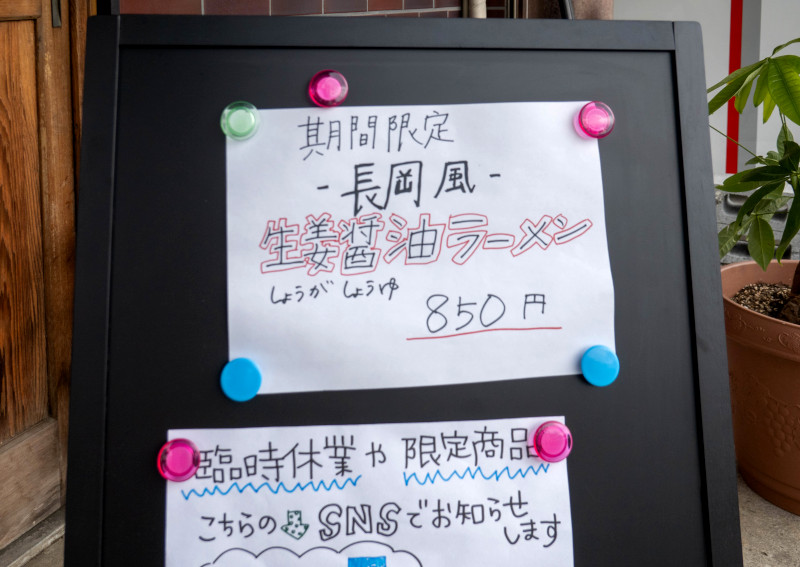 期間限定
-長岡風-
生姜醤油ラーメン
しょうが しょうゆ
850円
臨時休業や限定商品
こちらの⇩SNSでお知らせします